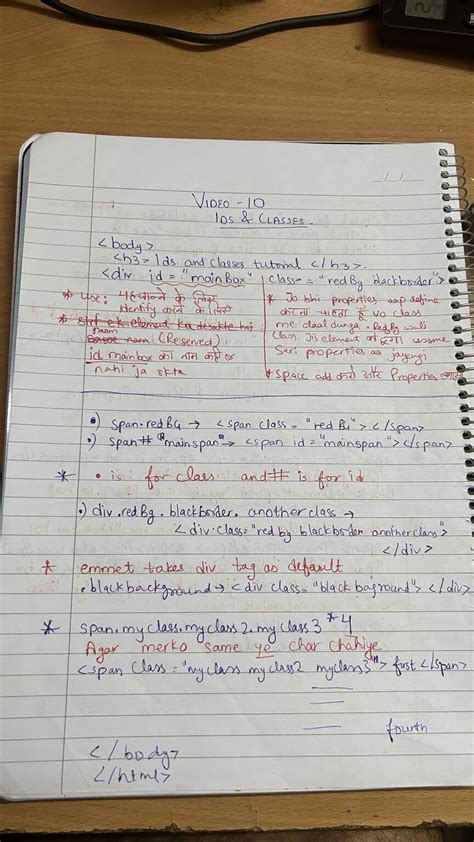 VIDEO-10
IDS & CLASSES
<body>
<h3= Ids and Classes tutorial </h3>.
<div id = "mainBox" class = "redBg blackborder">
* use: पहचानने के लिए
identify करने के लिए
* sirf ek element ka de sakte hai
naam
naam (Reserved).
id mainbox का नाम कहीं or
nahi ja skta
* Jo bhi properties aap define
करना चाहता है vo class
me daal dunga. RedBg वाली
class Jis element को दूंगा usme
Sari properties aa jayengi
* space add करो और Properties
•) span.redBG → <span class = "redBg"></span>
•) span# "mainspan" → <span id = "mainspan"></span>
* • is for class and # is for id
•) div.redBg.blackborder.anotherclass →
<div class="redbg blackborder anotherclass">
</div>
* emmet takes div tag as default
.blackbackground → <div class="blackbaground"></div>
* span.myclass.myclass2.myclass3*4
Agar merko same ye char chahiye
<span class="myclass myclass2 myclass3"> first </span>
fourth
</body>
</html>